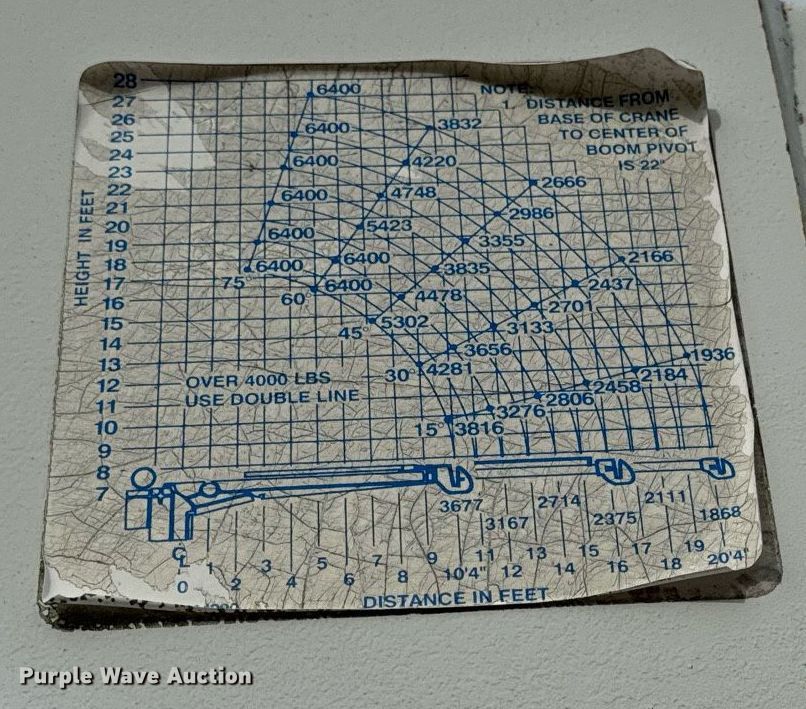 28
27
26
25
24
23
22
21
20
19
18
17
16
15
14
13
12
11
10
9
8
7
HEIGHT IN FEET
NOTE:
1. DISTANCE FROM
BASE OF CRANE
TO CENTER OF
BOOM PIVOT
IS 22"
6400
6400 3832
6400 4220
6400 4748 2666
6400 5423 2986
75° 6400 6400 3355 2166
60° 6400 3835 2437
4478 2701
45° 5302 3133
3656 1936
30° 4281 2184
2458
2806
3276
15° 3816
OVER 4000 LBS
USE DOUBLE LINE
3677 2714 2111
3167 2375 1868
CL
0 1 2 3 4 5 6 7 8 9 10'4" 11 12 13 14 15 16 17 18 19 20'4"
DISTANCE IN FEET
Purple Wave Auction